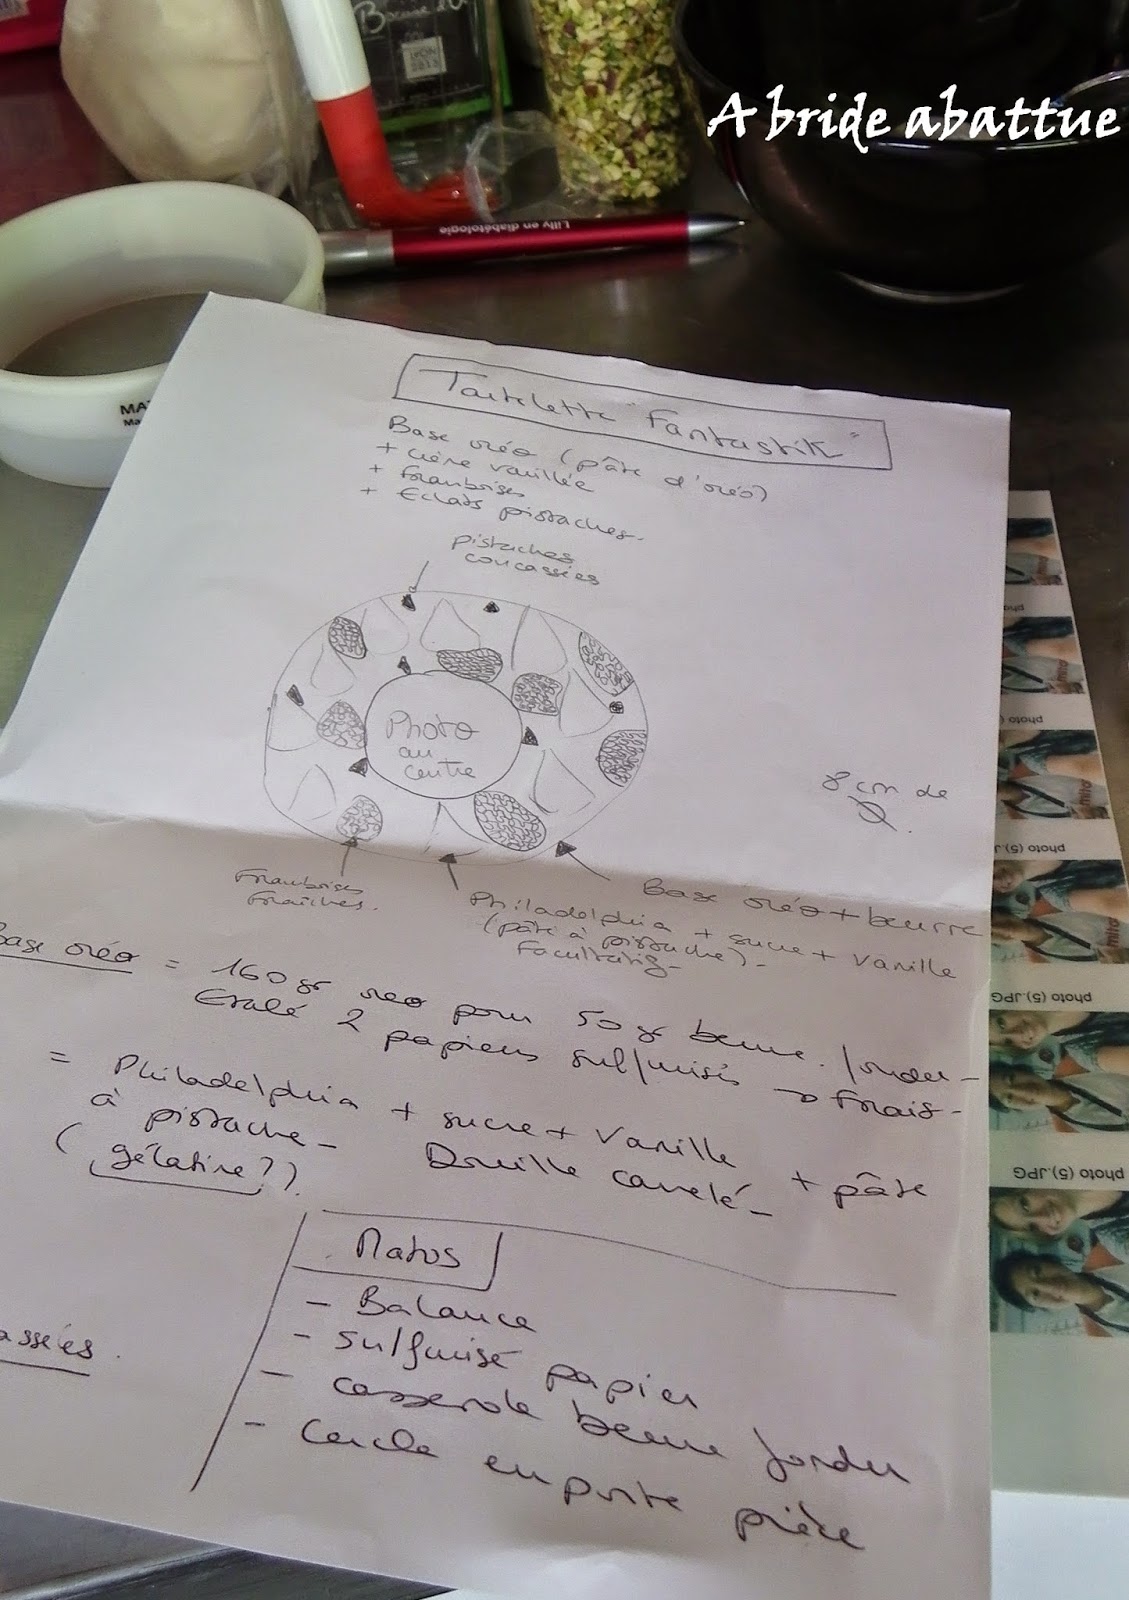 A bride abattue
LYON
2013
Lilly en diabétologie
MA
Ma
Tartelette "Fantastik"
Base oréo (pâte d'oréo)
+ crème vanillée
+ framboises
+ Eclats pistaches.
pistaches
concassées
Photo
au
centre
8 cm de
Ø.
Framboises
fraîches.
Base oréo + beurre
Philadelphia + sucre + vanille
(pâte à pistache) -
Facultatif -
Base oréo = 160 gr oreo pour 50 gr beurre fondu -
Etalé 2 papiers sulfurisés → Frais -
= Philadelphia + sucre + vanille + pâte
à pistache - Douille canelé -
(gélatine?).
assées.
Matos
- Balance
- sulfurisé papier
- casserole beurre fondu
- Cercle emporte pièce
photo (5).JPG
photo (5).JPG
photo (5).JPG